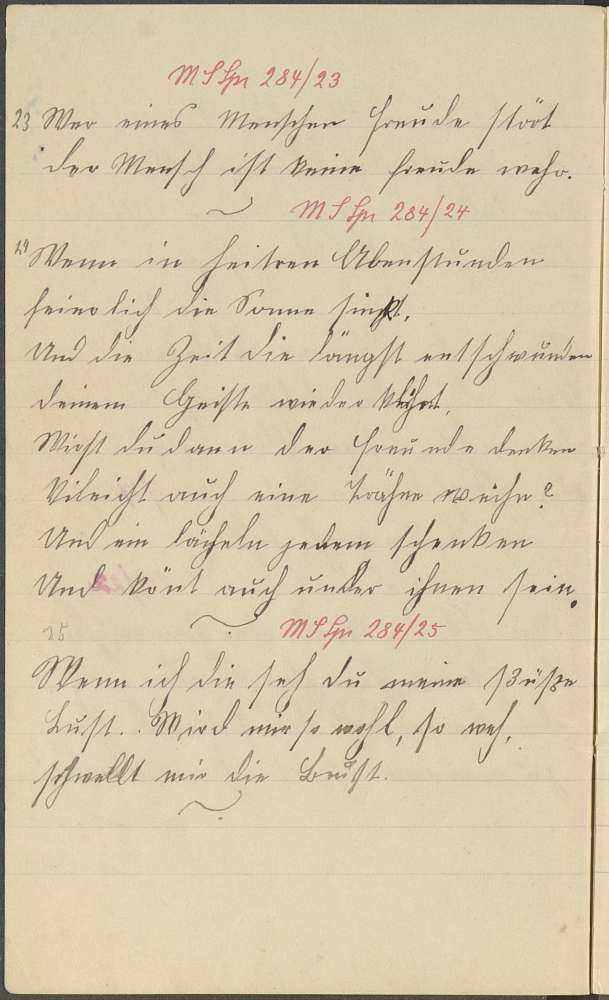 MS Spr 284/23
23 Wer eines Menschen Freude stört
der Mensch ist keine Freude wehr.
MS Spr 284/24
24 Wenn in heitren Abenstunden
feierlich die Sonne sinkt,
Und die Zeit die längst entschwunden
deinem Geiste wieder
Wirst du dann der Freunde denken
Vileicht auch eine Trähne weihn?
Und ein lächeln jedem schenken
Und könt auch under ihnen sein.
MS Spr 284/25
25
Wenn ich die seh du meine süße
Lust. Wird mir so wohl, so weh,
schwellt mir die Brust.